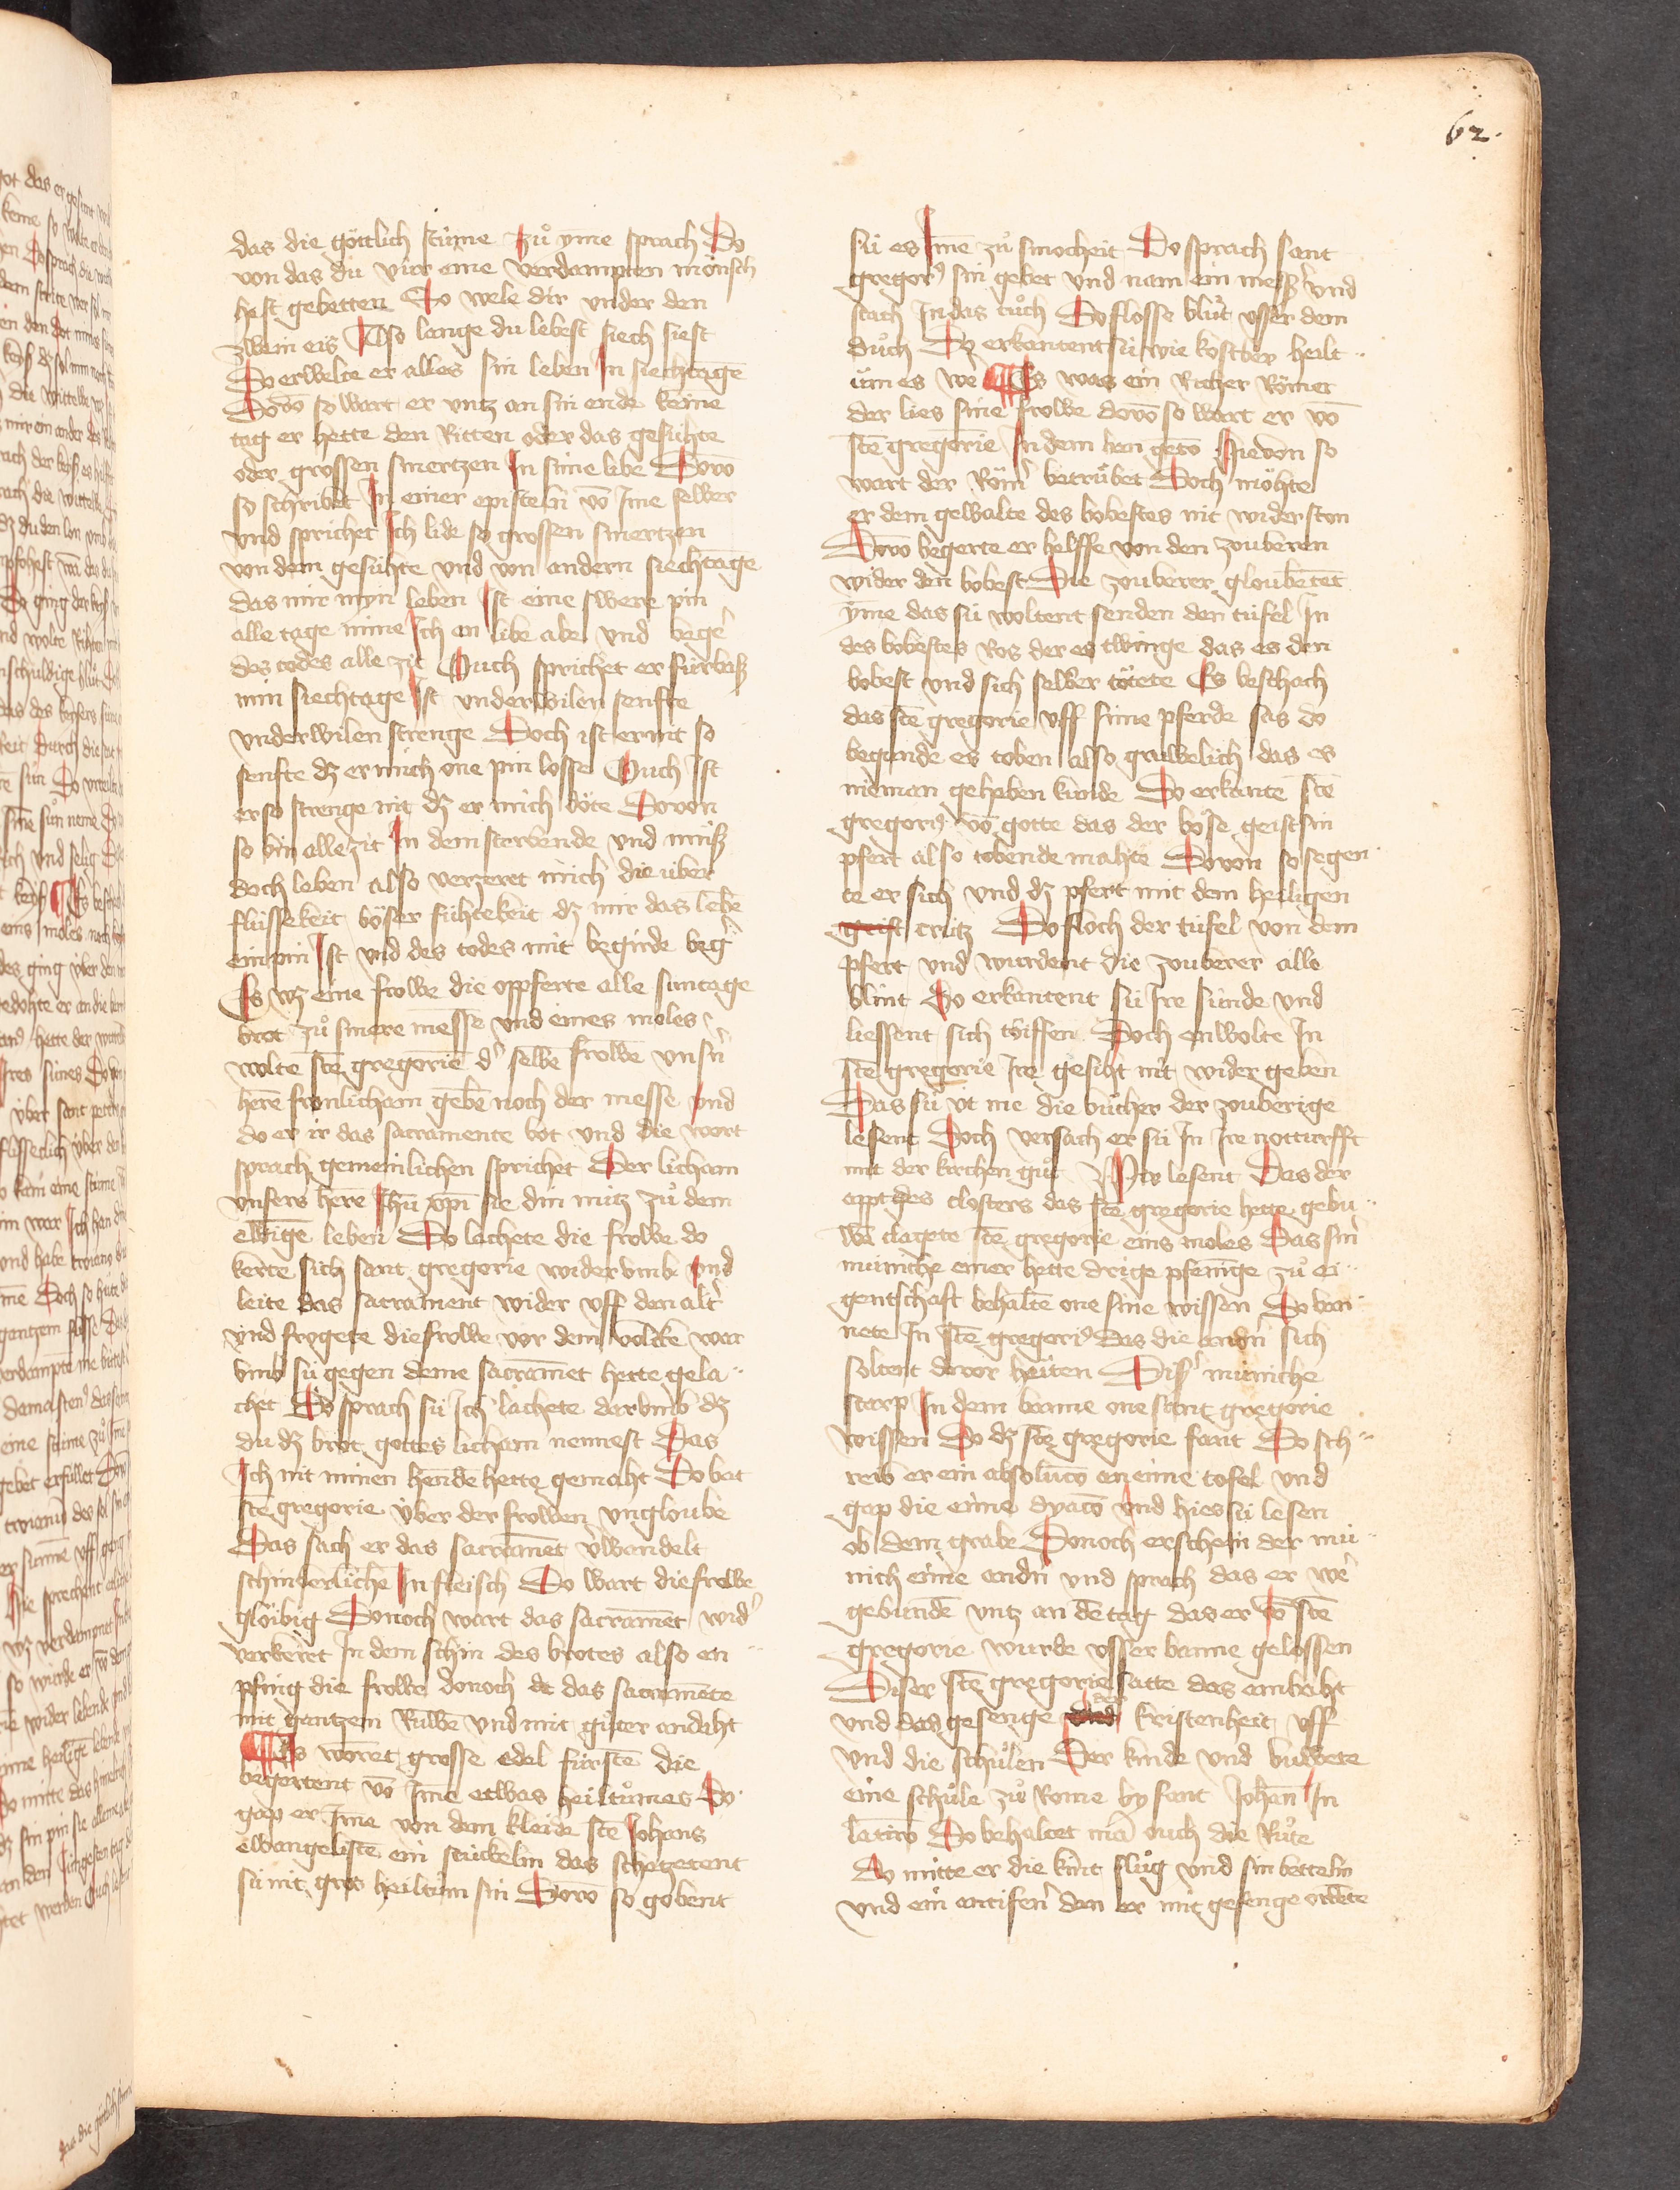 62.
das die göttlich stime zů yme sprach Do
von das du vúr eine verdampten mönsch
hest gebetten So wele dir vnder den
zwein eis Also lange du lebest siech siest
Do erwelte er alles sin leben In siechtage
Dovō so wart er vntz an sin ende keine
tag er hette den Ritten oder das gesühte
oder grossen smertzen In sime libe Dovō
so schribet In einer epistelen vō Ime selber
vnd sprichet Ich lide so grossen smertzen
von dem gesühte vnd von andern siechtage
das mir myn leben Ist eine swere pin
alle tage nime Ich an libe abe vnd beger
des todes alle zit Ouch sprichet er fürbasz
min siechtage Ist vnderwilen senfte
vnderwilen strenge Doch ist er nit so
senfte dz er mich one pin losse Ouch Ist
er so strenge nit dz er mich döte Dovon
so bin allezit In dem sterbende vnd musz
doch leben also verzeret mich die über
flüssekeit böser fühtekeit dz mir das lebē
ein pin Ist vnd des todes mit begirde beg̉
Es wz eine frowe die oppferte alle suntage
brot zů sinere messe vnd eines moles
wolte stē gregorie d' selbē frowē vns'n
herē fronlicham gebē noch der messe vnd
do er ir das sacramente bot vnd die wort
sprach gemeinlichen sprichet Der licham
vnsers herē Ihū xpī sie din nütz zů dem
ewigē leben Do lachete die frowe do
kerte sich sant gregorie widervmb vnd
leite das sacrament wider vff den alt'
vnd frogete die frowe vor dem volcke war
vmb sü gegen deme sacramēt hette gela
chet Do sprach sü Ich lachete darvmb dz
du dz brot gottes licham nennest Das
Ich mit minen hende hette gemaht Do bat
stē gregorie über der frowen vngloube
Das sach er das sacramēt v'wandelt
schinberlichē In fleisch Do wart die frowe
glöibig Donoch wart das sacramēt wid'
verkeret In dem schin des brotes also en
pfing die frowe donoch dt das sacramēte
mit gantzem Ruwē vnd mit gůter andaht
Es woret grosse edel fürstē die
begertent vō Ime etwas heiltůmes Do
gap er Ime von dem kleide stē Johans
ewangelistē ein stückelin das schatzetent
sü nit gros heiltům sin Dovō so gobent
sü es Ime zů smocheit Do sprach sant
gregor' sin gebet vnd nam ein messz' vnd
stach In das tůch Do flosse blůt vsser dem
důch Do erkantent sü wie kostber heilt
ům es we' Es was ein Richer Römer
der lies sine frowe dovō so wart er vō
stē gregorie In dem ben getō Hievon so
wart der Röm' betrübet Doch möhte
er dem gewalte des bobestes nit widerston
Dovō begerte er helffe von den zouberen
wider den bobest Die zouberer gloubetet
yme das sü woltent senden den tüfel In
des bobestes Ros der es twinge das es den
bobest vnd sich selber tötete Es beschach
das stē gregorie vff sime pferde sas do
begunde es toben also gruwelich das es
nieman gehaben kunde Do erkante stē
gregori' vō gotte das der böse geist sin
pfert also tobende mahte Dovon so segen
te er sich vnd dz pfert mit dem heiligen
crütz Do floch der tüfel von dem
pfert vnd wurdent die zouberer alle
blint Do erkantent sü Ire sünde vnd
liessent sich töiffen Doch enwolte In
stē gregorie Ire gesiht nit wider geben
Das sü üt me die bücher der zouberige
lesent Doch versach er sü In Ire notturfft
mit der kirchen gůt Wir lesent Das der
appt des closters das stē gregorie hette gebu
wē clagete stē gregorie eins moles Das sin'
müniche einer hette drige pfenige zů ei
gentschaft behaltē one sine wissen Do ban
nete In stē gregori' Das die and'n sich
soltent dovor hüten Dis' müniche
starp In dem banne one sant gregorie
wissen Do dz stē gregorie fant Do sch
reib er ein absolucō an eime tofel vnd
gap die eime dyacō vnd hies sü lesen
ob dem grabe Donoch erschein der mü
nich eime and'n vnd sprach das er we'
gebundē vntz an dē tag das er vō stē
gregorie wurde vsser banne gelossen
Diser stē gregorie satte das ambaht
vnd das gesenge der kristenheit vff
vnd die schůlen Der kinde vnd buwete
eine schůle zů Rome by sant Johan In
latirō Do behaltet mā ouch die Růte
do mitte er die kint slůg vnd sin bettelin
und ein antifen' den er mit gesenge ordēte